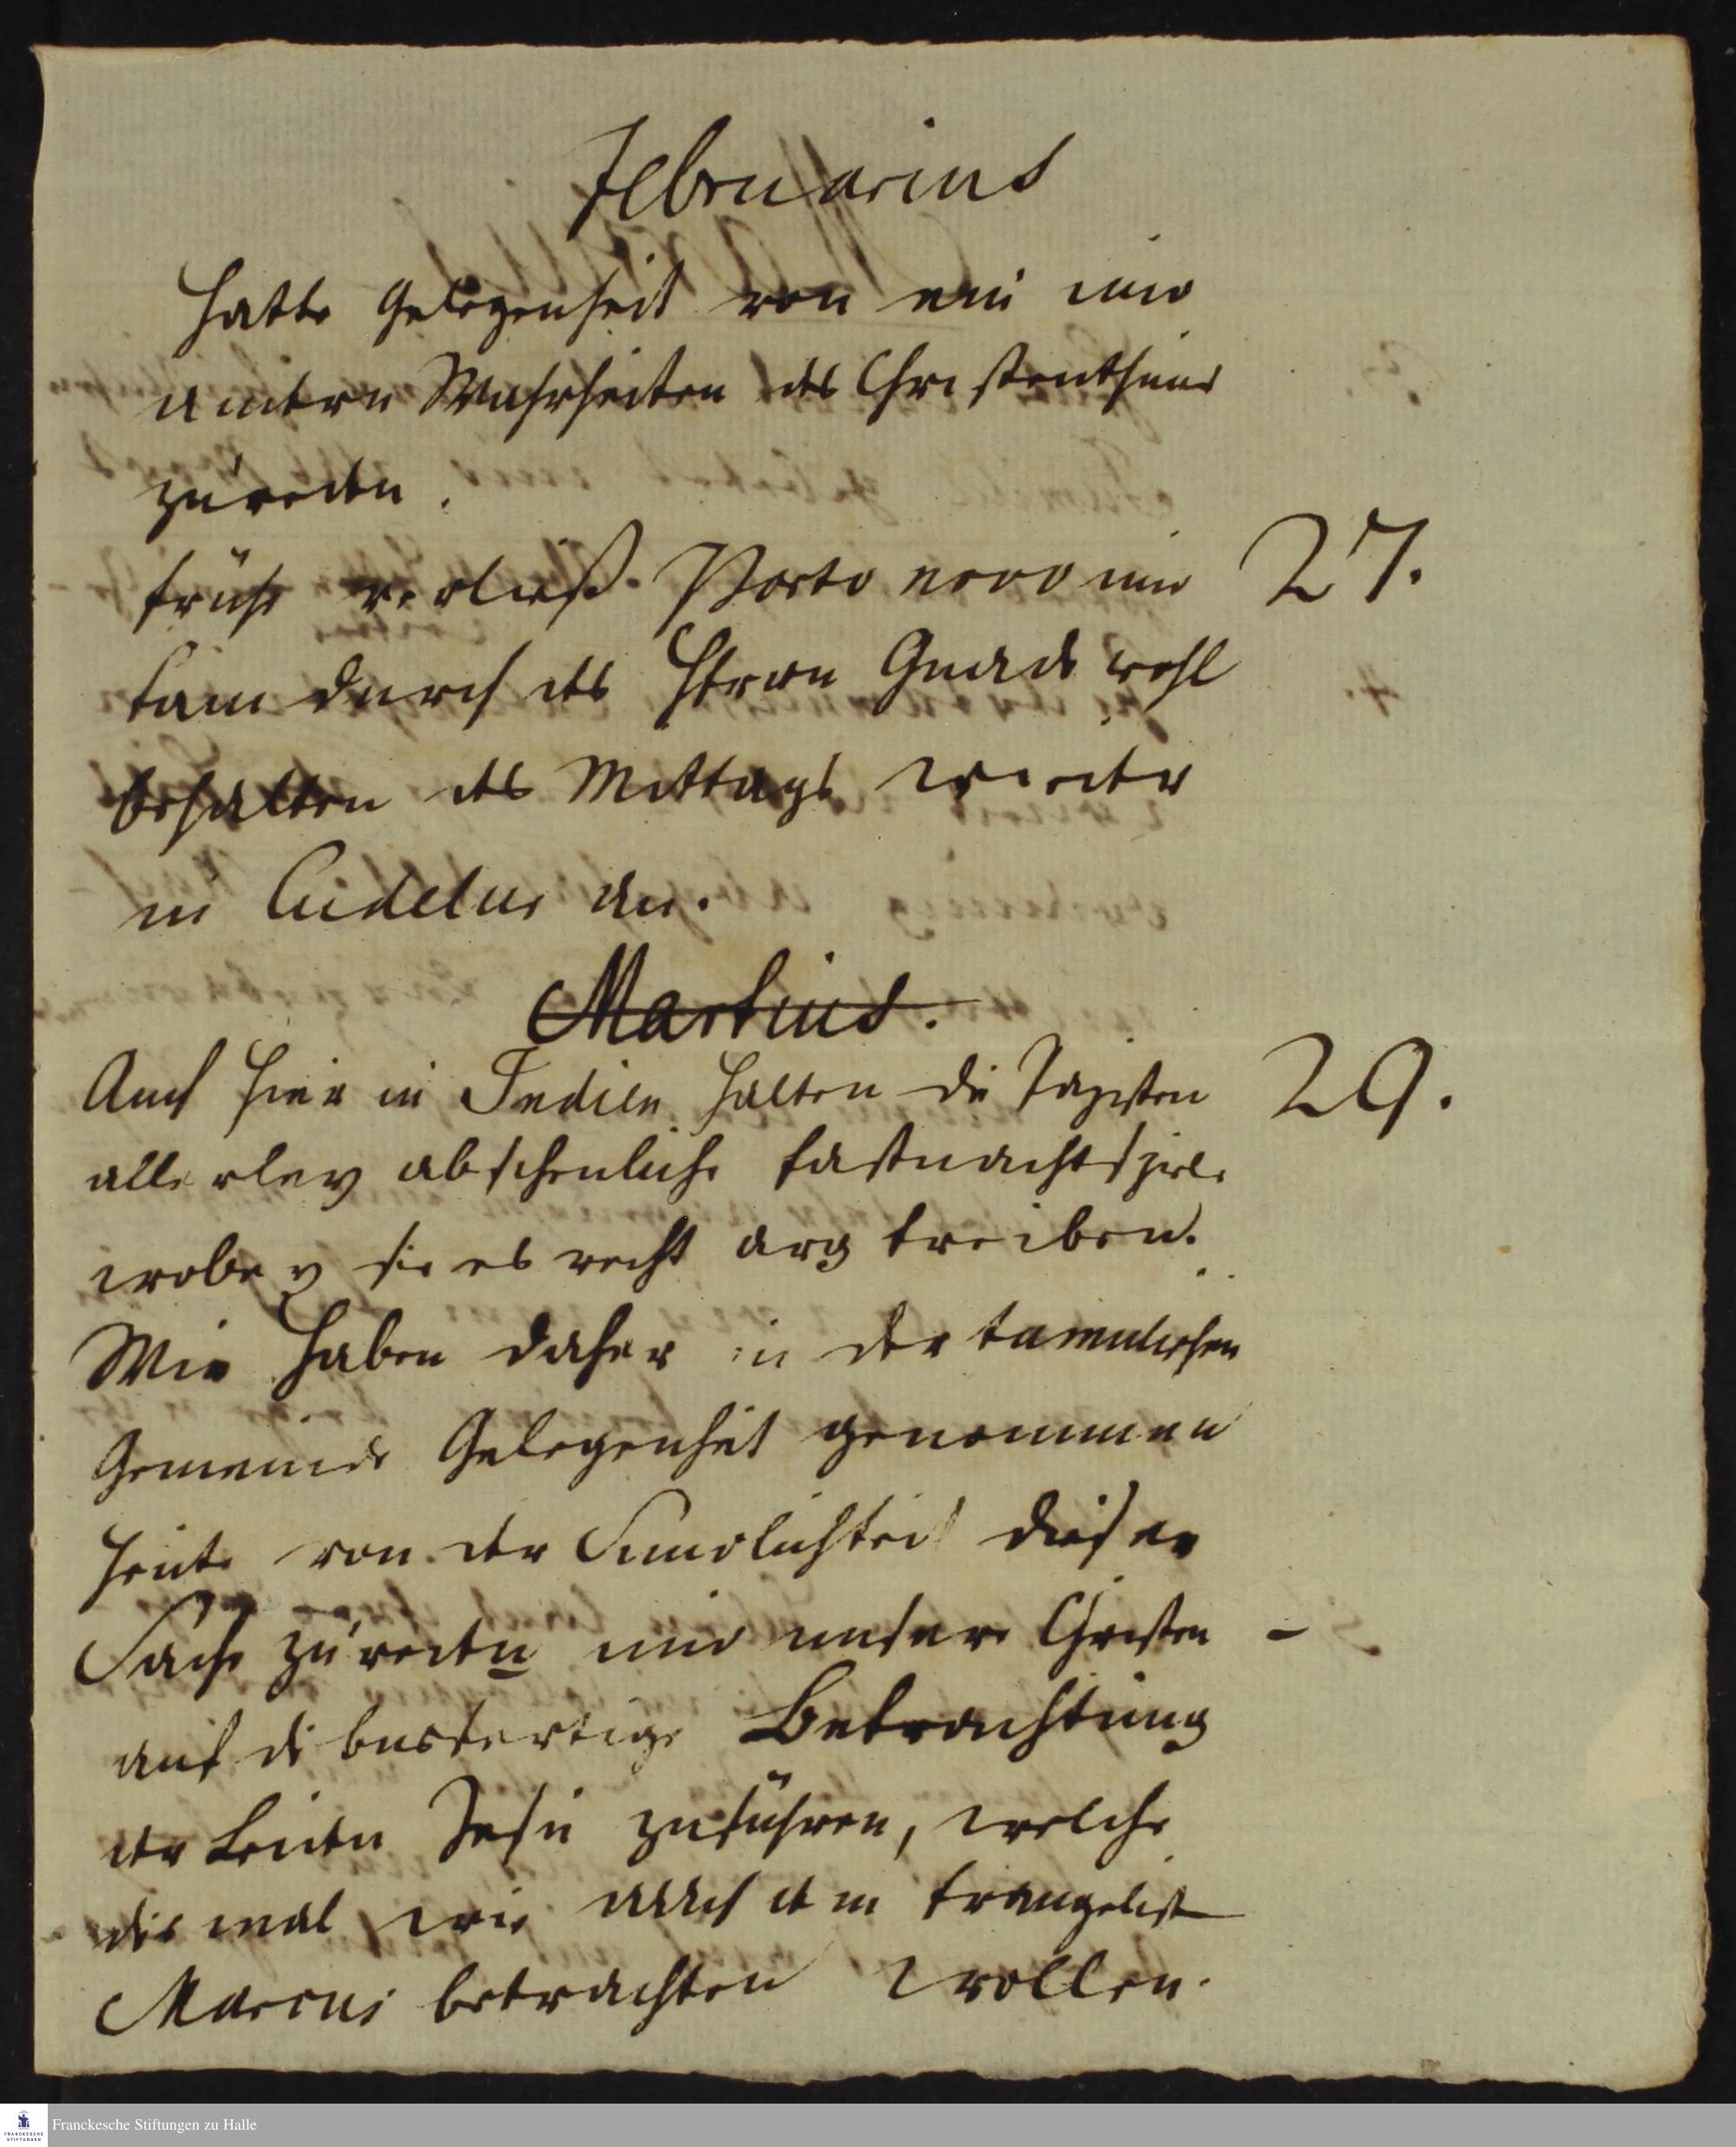 Februarius
hatte Gelegenheit von ein und
andern Wahrheiten des Christenthums
zu reden.
früh verließ Porto novo und 27.
kam durch des Herrn Gnade wohl
behalten des Mittags wieder
in Cudelur an.
Martius.
Auch hier in Indien halten die Papisten 29.
allerley abscheuliche Fastnachtspiele
wobey sie es recht arg treiben.
Wir haben daher in der tamulischen
Gemeinde Gelegenheit genommen
heute von der Sündlichkeit dieser
Sache zu reden und unsere Christen -
auf die busfertige Betrachtung
der Leiden Jesu zuführen, welche
dis mal wir nach dem Evangelist
Marcus betrachten wollen.
Franckesche Stiftungen zu Halle